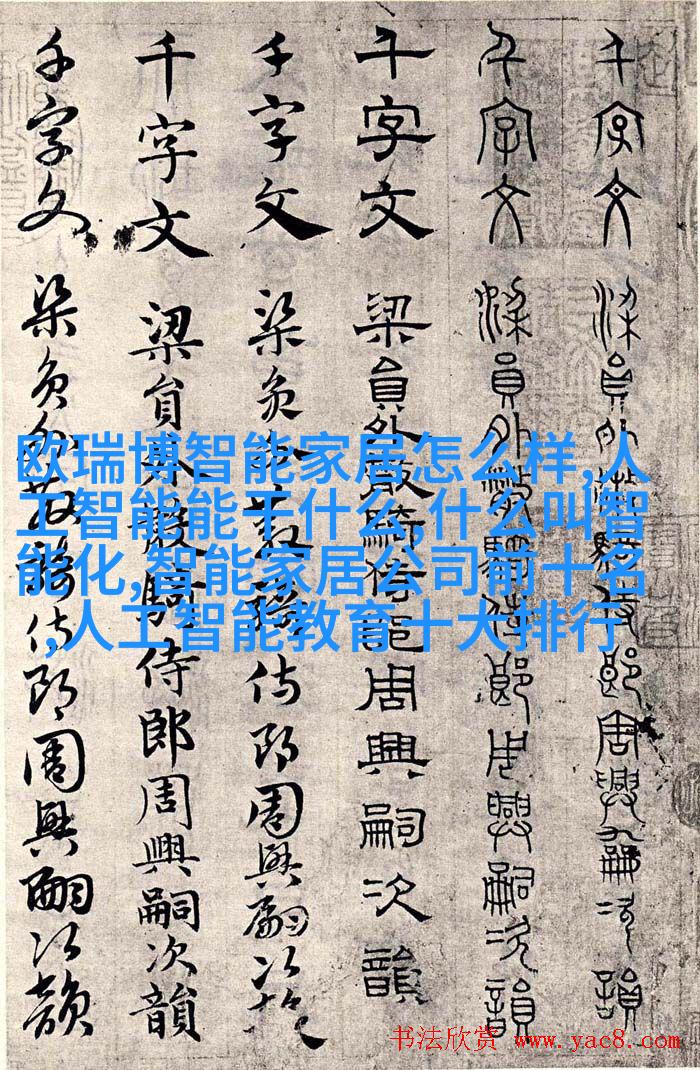 千字文 梁員外散騎侍郎周興嗣次韻
千字文 梁員外散騎侍郎周興嗣次韻
千字文 梁員外散騎侍郎周興嗣次韻
千字文 梁員外散騎侍郎周興嗣次韻
千字文 梁員外散騎侍郎周興嗣次韻
千字文 梁員外散騎侍郎周興嗣次韻
欧瑞博智能家居怎么样,人
工智能能干什么,什么叫智
能化,智能家居公司前十名
,人工智能教育十大排行
书法欣赏 www.yac8.com